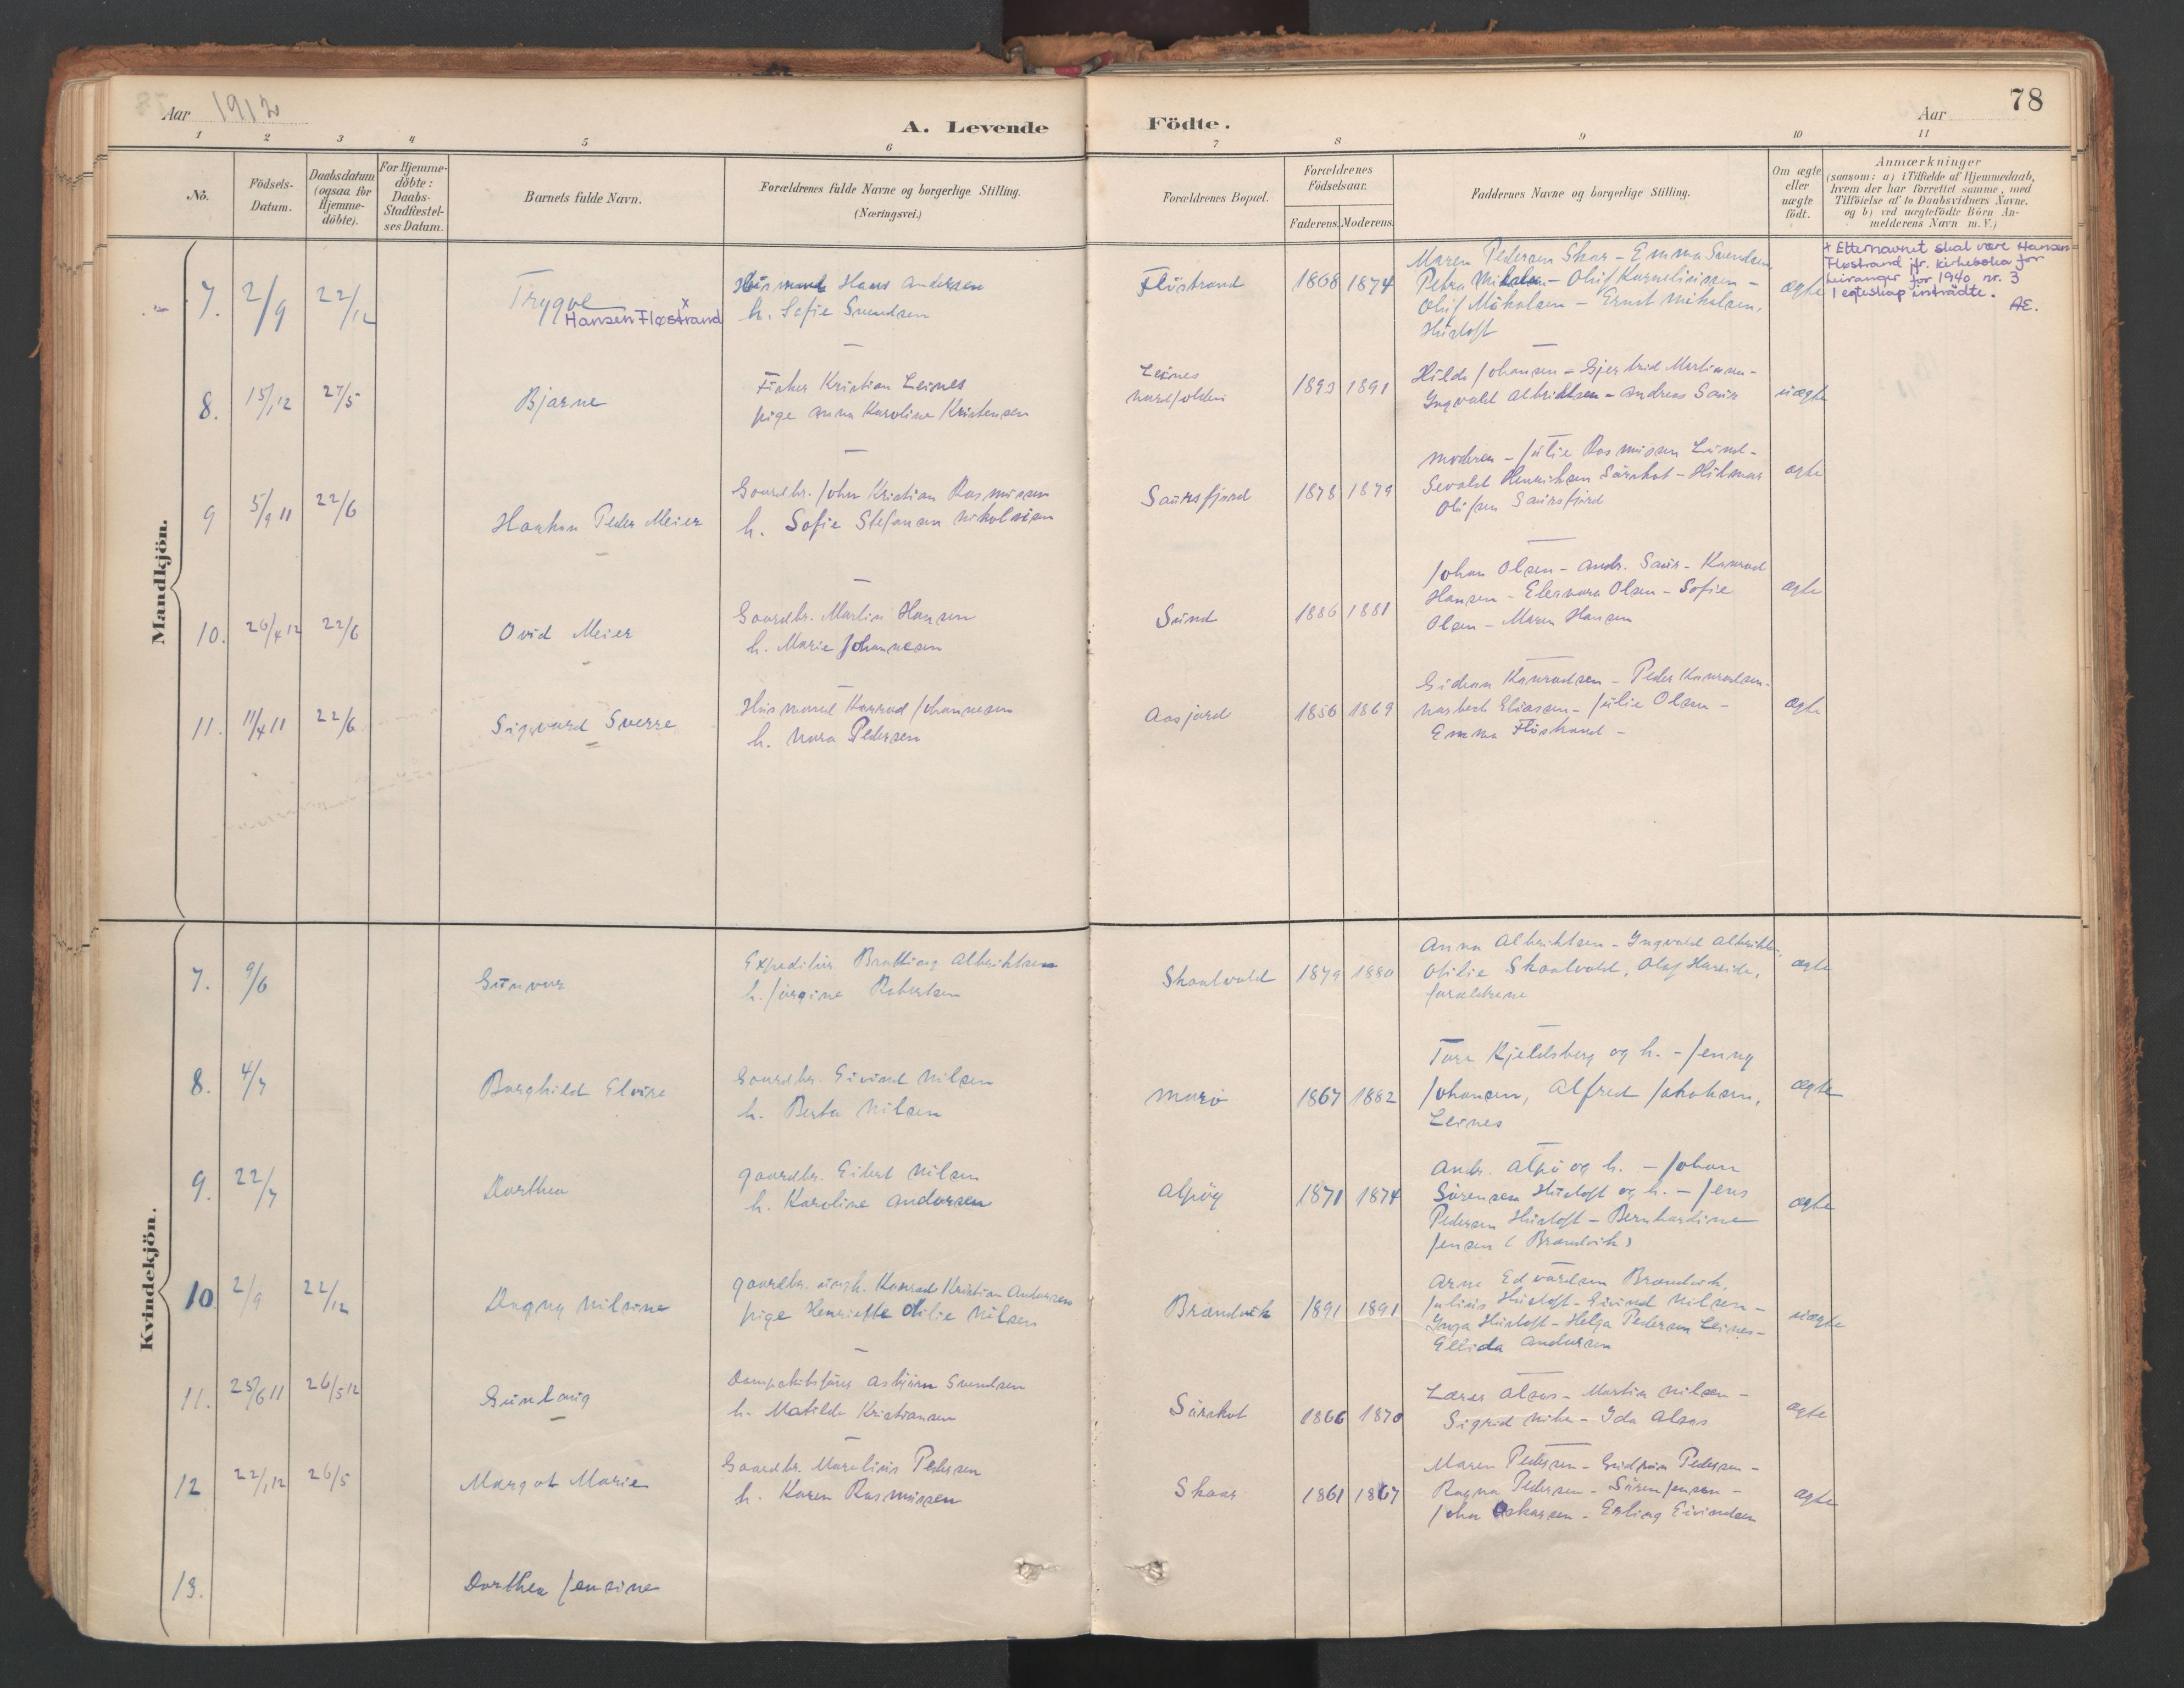 Aar 1912
A. Levende Födte.
Aar
78
1 2 3 4 5 6 7 8 9 10 11
No.
Födsels-Datum.
Daabsdatum (ogsaa for Hjemme-döbte).
For Hjemme-döbte: Daabs-Stadfæstel-ses Datum.
Barnets fulde Navn.
Forældrenes fulde Navne og borgerlige Stilling.
(Næringsvei.)
Forældrenes Bopæl.
Forældrenes Födselsaar.
Faderens. Moderens.
Faddernes Navne og borgerlige Stilling.
Om ægte eller uægte födt.
Anmærkninger
(saasom: a) i Tilfælde af Hjemmedaab,
hvem der har forrettet samme, med
Tilföielse af to Daabsvidners Navne.
og b) ved uægtefödte Börn An-
melderens Navn m. V.)
Mandkjön.
7. 2/9 22/12
Trygve
Hansen Fløstrand x
Husmand Hans Andersen
h. Sofie Svendsen
Flöstrand
1868 1874
Maren Pedersen Skar - Emma Svendsen
Petra Mikalsen - Oluf Korneliussen -
Oluf Mikalsen - Ernst Mikalsen,
Husloft
ægte
+ Etternavnet skal være Hansen
Fløstrand jfr. kirkeboka for
Leiranger for 1940 nr. 3
I egteskap inntrådte.
AE.
8. 15/1 12 27/5
Bjarne
Fisker Kristian Leines
pige Anna Karoline Kristensen
Leines
Nordfolden
1893 1891
Hilda Johansen - Gjertrud Martinsen -
Ingvald Albriktsen - Andreas Saur
uægte
9 5/9 11 22/6
Haakon Peder Meier
Gaardbr. John Kristian Rasmussen
h. Sofie Stefansen Nikolaisen
Saursfjord
1878 1879
Moderen - Julie Rasmussen Lund -
Sevald Henriksen Sörskot - Hilmar
Olufsen Saursfjord
ægte
10. 26/4 12 22/6
Ovid Meier
Gaardbr. Martin Hansen
h. Marie Johannesen
Sund
1886 1881
Johan Olsen - Andr. Saur - Konrad
Hansen - Elenora Olsen - Sofie
Olsen - Maren Hansen
ægte
11. 11/4 11 22/6
Sigvard Sverre
Husmand Konrad Johannesen
h. Nora Pedersen
Aasjord
1856 1869
Gidion Konradsen - Peder Konradsen -
Eliasen - Julie Olsen -
Emma Flöstrand -
ægte
Kvindekjön.
7. 9/6
Gunvor
Expeditör Albriktsen
h. Jörgine Robertsen
Skaalvold
1879 1880
Anna Albriktsen - Ingvald Albriktsen,
Otilie Skaalvold, Olaf Hareide,
forældrene
ægte
8. 4/7
Borghild Elvira
Gaardbr. Eivind Nilsen
h. Berta Nilsen
Murö
1867 1882
Tore Kjeldsberg og h. - Jenny
Johansen, Alfred Jakobsen,
Leines
ægte
9. 22/7
Dorthea
gaardbr. Eibert Nilsen
h. Karoline Andersen
Alpöy
1871 1874
Andr. Alpö og h. - Johan
Sörensen Husloft og h. - Jens
Pedersen Husloft - Bernhardine
Jensen (Brændvik)
ægte
10 2/9 22/12
Dagny Nilsine
gaardbr. ungk. Konrad Kristian Andersen
pige Henriette Otilie Nilsen
Brændvik
1891 1891
Arne Edvardsen Brændvik,
Julius Husloft - Eivind Nilsen -
Inga Husloft - Helga Pedersen Leines -
Ellida Andersen
uægte
11. 25/6 11 26/5 12
Gunlaug
Dampskibsförer Asbjörn Svendsen
h. Matilde Kristiansen
Sörskot
1866 1870
Lærer Alsos - Martin Nilsen -
Sigrid - Ida Alsos
ægte
12 22/1 12 26/5
Margot Marie
Gaardbr. Marelius Pedersen
h. Karen Rasmussen
Skaar
1861 1867
Maren Pedersen - Gudrun Pedersen -
Ragna Pedersen - Sören Jensen -
John Oskarsen - Erling Eivindsen
ægte
13.
Dorthea Jensine